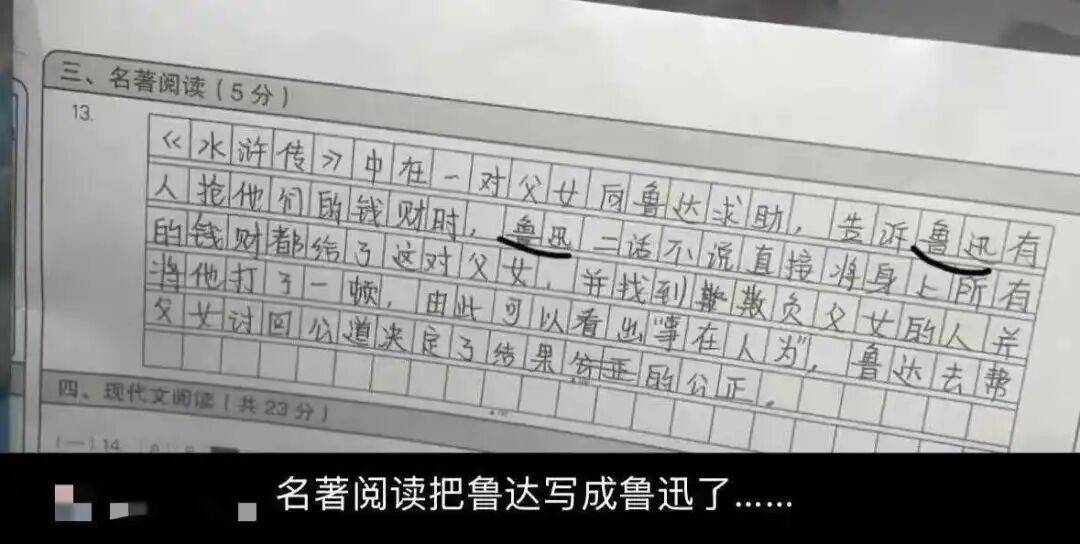 三、名著阅读（5分）
13.
《水浒传》中在一对父女向鲁达求助，告诉鲁迅有
人抢他们的钱财时，鲁迅二话不说直接将身上所有
的钱财都给了这对父女，并找到欺负父女的人并
将他打了一顿，由此可以看出"事在人为"，鲁达去帮
父女讨回公道决定了结果的公正。
四、现代文阅读（共23分）
（一）14
名著阅读把鲁达写成鲁迅了......